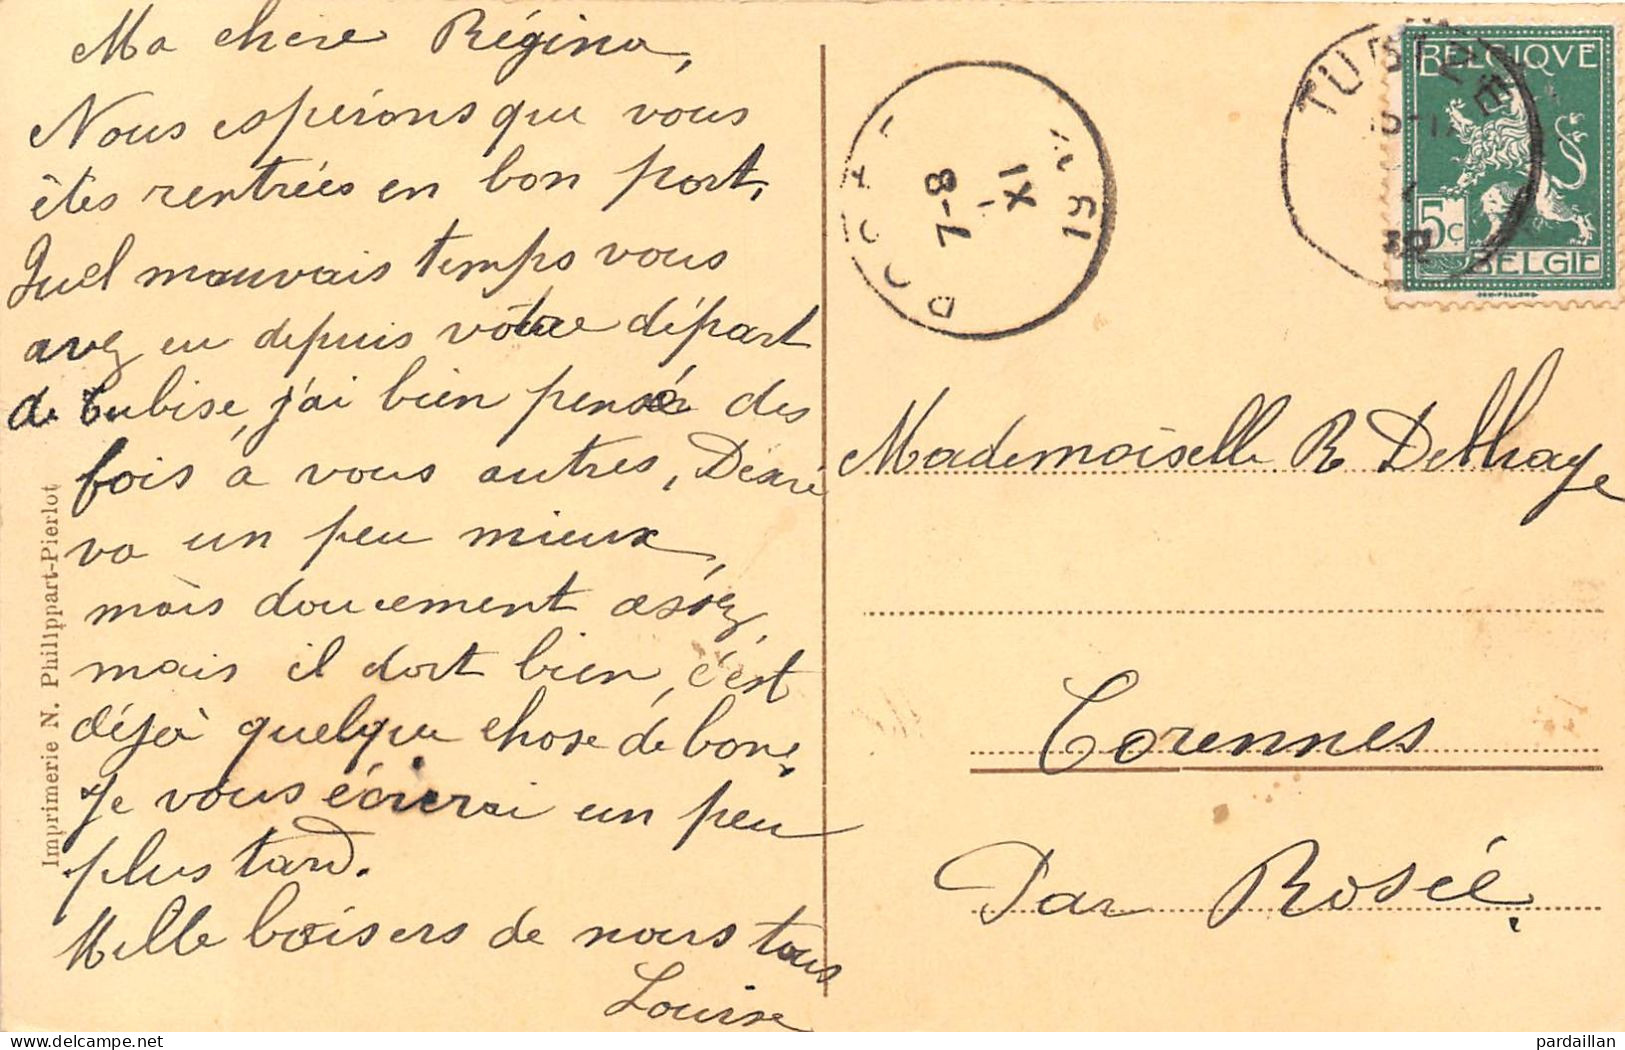 Ma chere Régina,
Nous espérons que vous
êtes rentrées en bon port,
Quel mauvais temps vous
avez eu depuis votre départ
de tubise, j'ai bien pensé des
fois a vous autres, Désiré
va un peu mieux,
mais doucement assez,
mais il dort bien, c'est
déjà quelque chose de bon,
Je vous écrierai un peu
plus tard.
Mille baisers de nous tous
Louise
Imprimerie N. Philippart-Pierlot
7-8
XI
19
TUBIZE
BELGIQVE
5c
BELGIE
Mademoiselle R Delhaye
Corennes
Par Rosée.
pardaillan